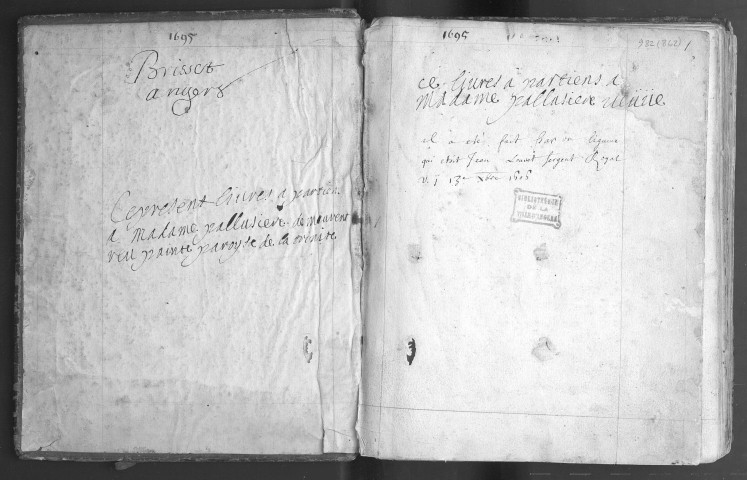 1695
Brisset
angers
Ce present liures a partiens
a madame pallusiere demeurent
reu painte paroysse de la trenite
1695
982 (862) 1
ce liures a partiens a
madame pallusiere ueüüe
il a esté fait par un ligueur
qui etoit Jean Louvet sergent Royal
v. j 13e Xbre
BIBLIOTHEQUE
DE LA
VILLE D'ANGERS